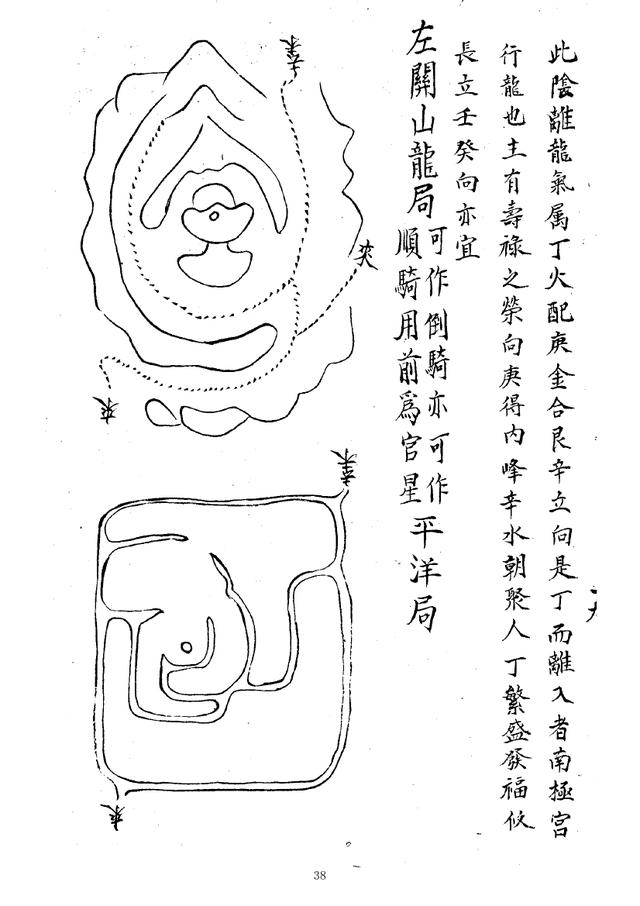 此陰離龍氣属丁火配庚金合艮辛立向是丁而離入者南極宮
行龍也主有壽祿之榮向庚得內峰辛水朝聚人丁繁盛發福攸
長立壬癸向亦宜
左關山龍局 可作倒騎亦可作
順騎用前為官星 平洋局
來
夾
來
來
來
38